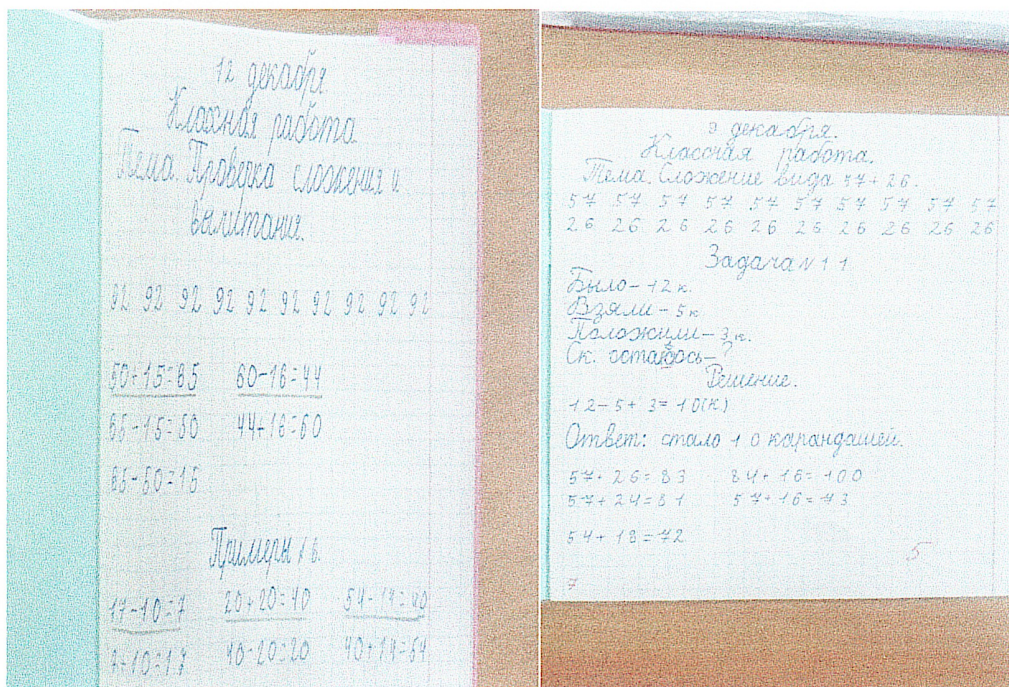 12 декабря.
Классная работа
Тема. Проверка сложения и
вычитания.
92 92 92 92 92 92 92 92 92 92
50+15=65 60-16=44
65-15=50 44+16=60
65-50=15
Примеры
17-10=7 20+20=40 54-14=40
7+10=17 40-20=20 40+14=54
9 декабря.
Классная работа.
Тема. Сложение вида 57+26.
57 57 57 57 57 57 57 57 57 57
26 26 26 26 26 26 26 26 26 26
Задача №11
Было-12к.
Взяли-5к
Положили-3к.
Ск. осталось-?
Решение.
12-5+3=10(к)
Ответ: стало 10 карандашей.
57+26=83 84+16=100
57+24=81 57+16=73
54+18=72
5
7